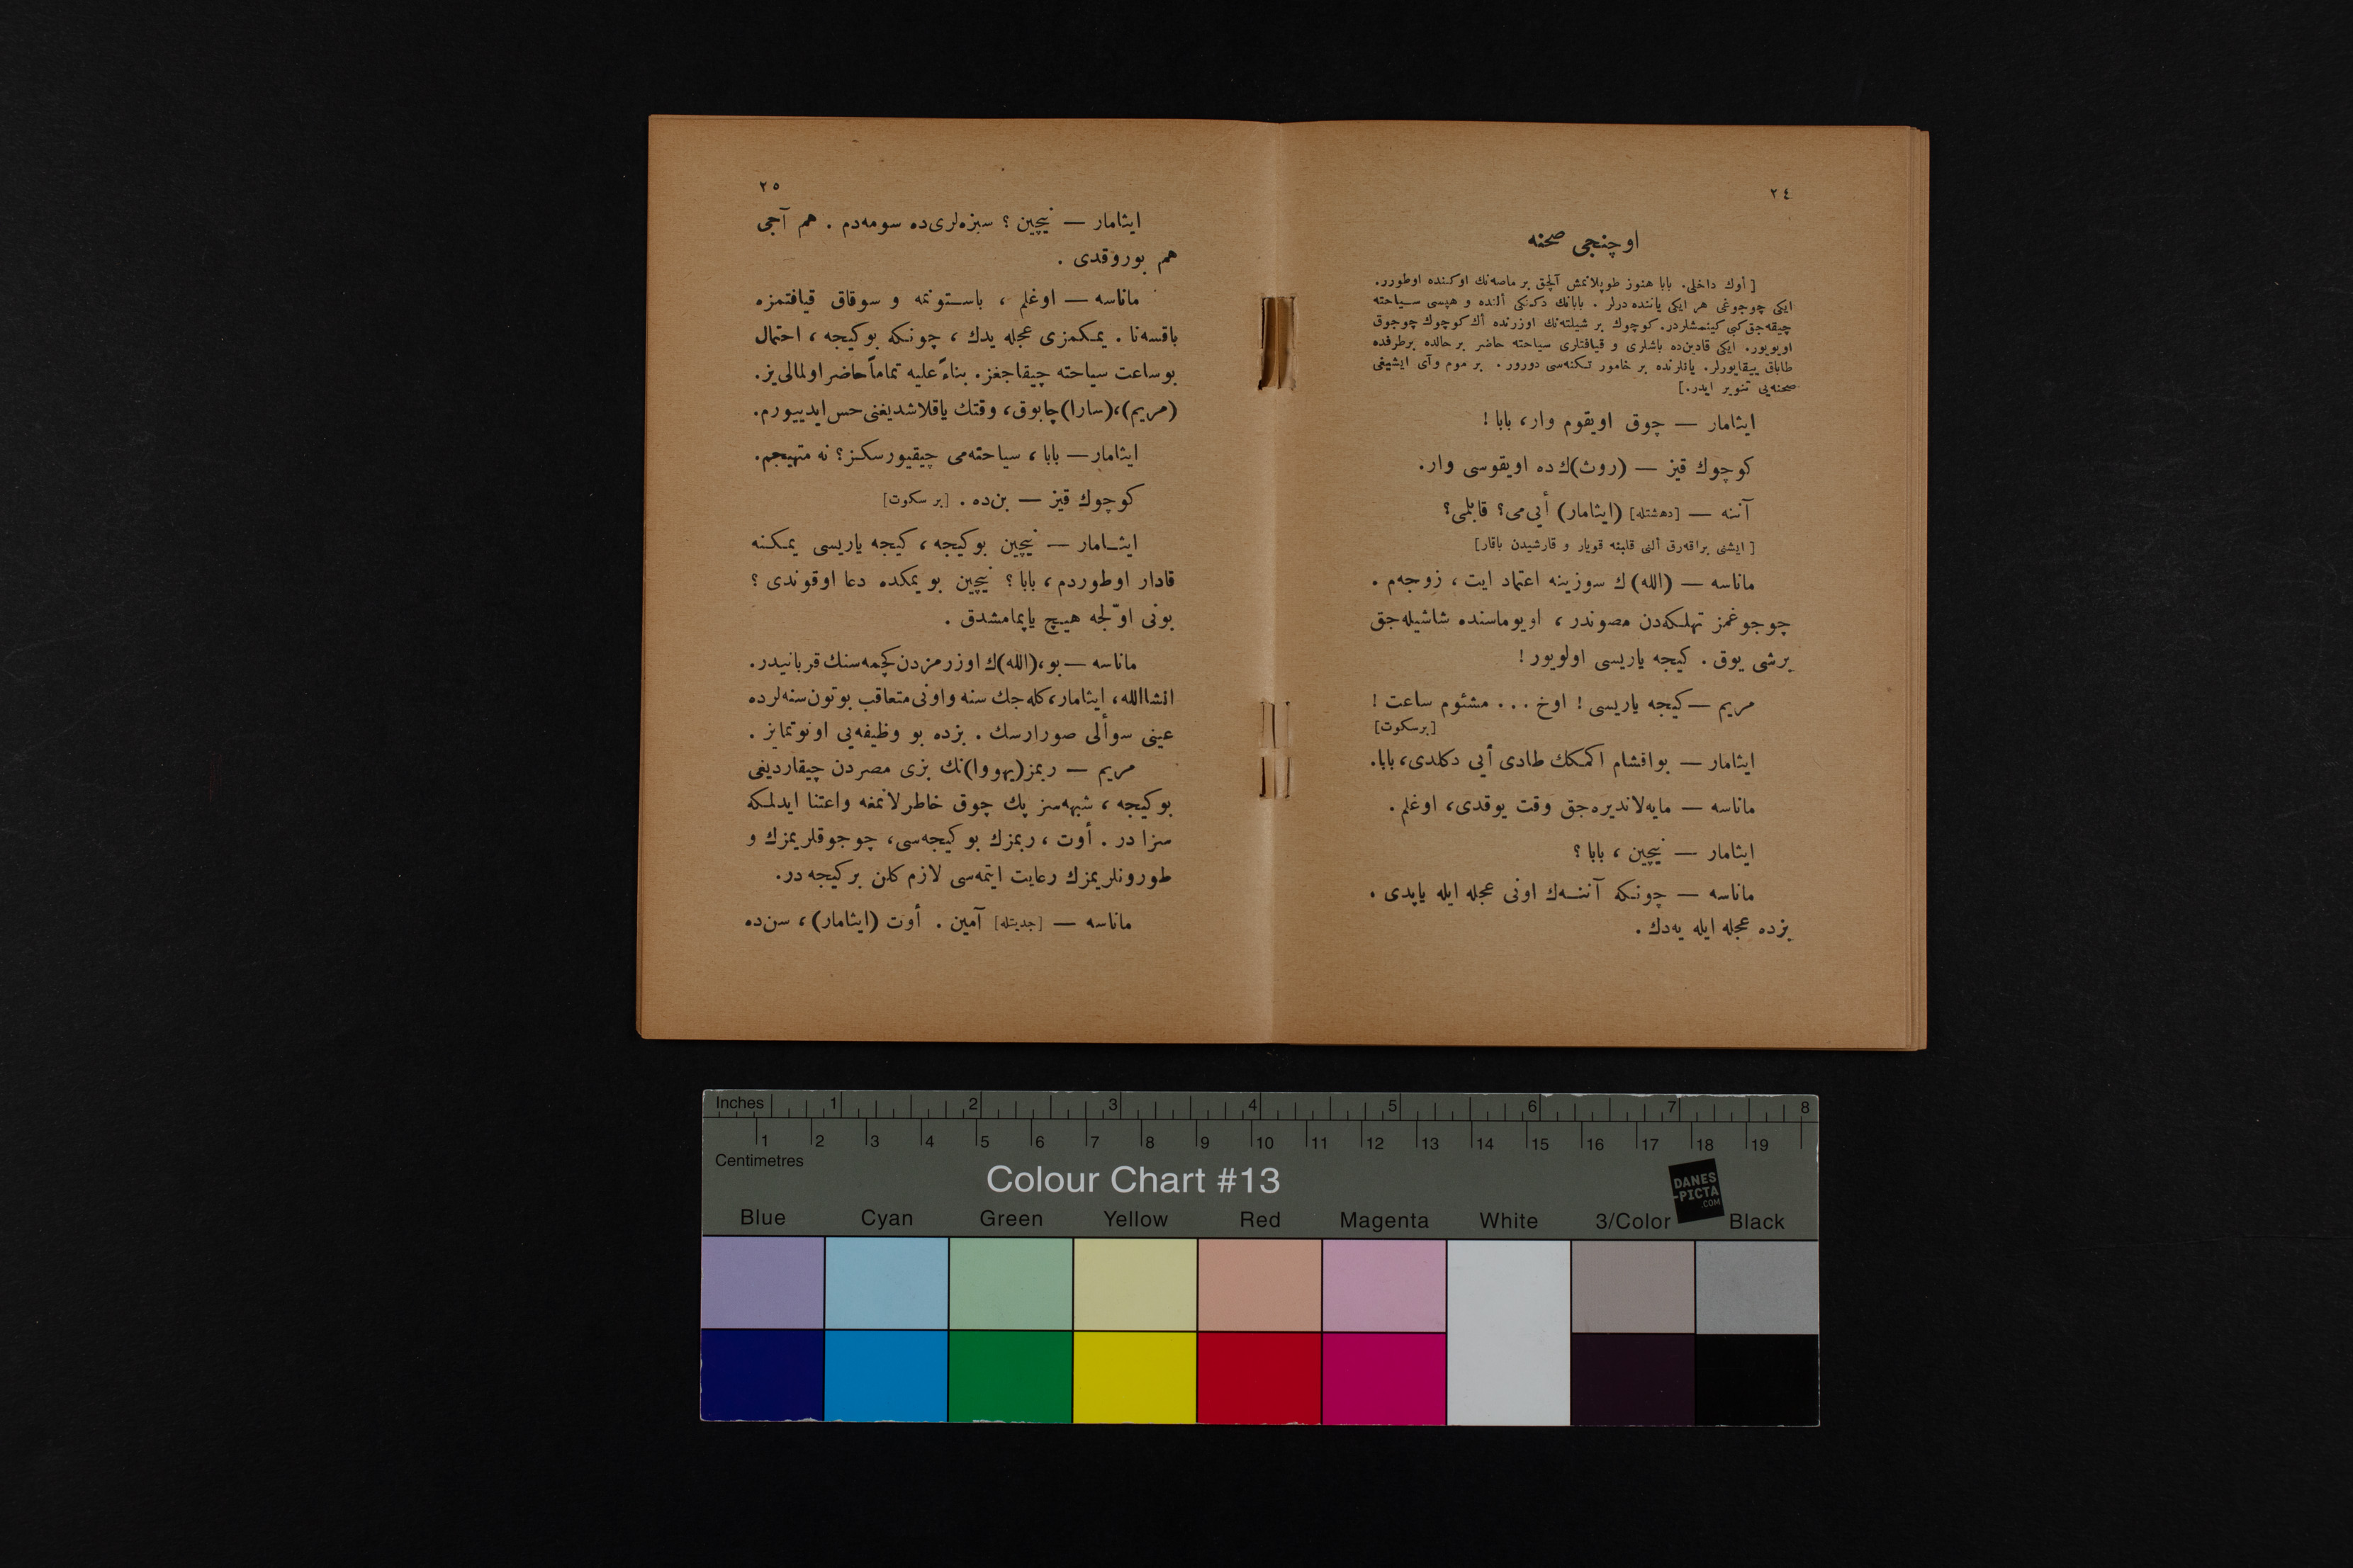 ٢٤
اوچنجی صحنه
[ أوك داخلی. بابا هنوز طوپلانمش آلچق بر ماصه‌نك اوكنده اوطورر.
ایكی چوجوغی هر ایكی یاننده درلر . بابانك دكنكی ألنده و هپسی سیاحته
چیقه‌جق كبی كینمشلردر. كوچوك بر شیلته‌نك اوزرنده أك كوچوك چوجوق
اویویور. ایكی قادین‌ده باشلری و قیافتلری سیاحته حاضر بر حالده برطرفده
طاباق ییقایورلر. یانلرنده بر خامور تكنه‌سی دورور . بر موم وآی ایشیغی
صحنه‌یی تنویر ایدر.]
ایثامار — چوق اویقوم وار، بابا !
كوچوك قیز — (روث)ك ده اویقوسی وار.
آننه — [دهشتله] (ایثامار) أیی‌می؟ قابلمی؟
[ ایشنی براقه‌رق ألنی قلبنه قویار و قارشیدن باقار]
ماناسه — (الله)ك سوزینه اعتماد ایت، زوجه‌م .
چوجوغمز تهلكه‌دن مصوندر ، اویوماسنده شاشیله‌جق
برشی یوق . كیجه یاریسی اولویور !
مریم — كیجه یاریسی ! اوخ ... مشئوم ساعت !
[برسكوت]
ایثامار — بواقشام اكمكك طادی أیی دكلدی، بابا.
ماناسه — مایه‌لاندیره‌جق وقت یوقدی، اوغلم .
ایثامار — نیچین ، بابا ؟
ماناسه — چونكه آننه‌ك اونی عجله ایله یاپدی .
بزده عجله ایله یه‌دك .
٢٥
ایثامار — نیچین ؟ سبزه‌لری‌ده سومه‌دم . هم آجی
هم بوروقدی .
ماناسه — اوغلم ، باستونمه و سوقاق قیافتمزه
باقسه‌نا . یمكمزی عجله یدك ، چونكه بوكیجه ، احتمال
بوساعت سیاحته چیقاجغز. بناءً علیه تماماً حاضر اولمالی‌یز.
(مریم)،(سارا)چابوق، وقتك یاقلاشدیغنی حس ایدییورم.
ایثامار — بابا ، سیاحته‌می چیقیورسكز؟ نه متهیجم.
كوچوك قیز — بن‌ده . [بر سكوت]
ایثامار — نیچین بوكیجه ، كیجه یاریسی یمكنه
قادار اوطوردم ، بابا ؟ نیچین بو یمكده دعا اوقوندی ؟
بونی اوّلجه هیچ یاپمامشدق .
ماناسه — بو،(الله)ك اوزرمزدن كچمه‌سنك قربانیدر.
انشاالله ، ایثامار،كله‌جك سنه واونی متعاقب بوتون سنه‌لرده
عینی سوألی صورارسك . بزده بو وظیفه‌یی اونوتمایز .
مریم — ربمز(یهووا)نك بزی مصردن چیقاردیغی
بوكیجه ، شبهه‌سز پك چوق خاطرلانمغه واعتنا ایدلمكه
سزا در . أوت ، ربمزك بو كیجه‌سی، چوجوقلریمزك و
طورونلریمزك رعایت ایتمه‌سی لازم كلن بركیجه در.
ماناسه — [جدیتله] آمین . أوت (ایثامار)، سن‌ده
Inches 1 2 3 4 5 6 7 8
1 2 3 4 5 6 7 8 9 10 11 12 13 14 15 16 17 18 19
Centimetres
Colour Chart #13
DANES
-PICTA
.COM
Blue Cyan Green Yellow Red Magenta White 3/Color Black